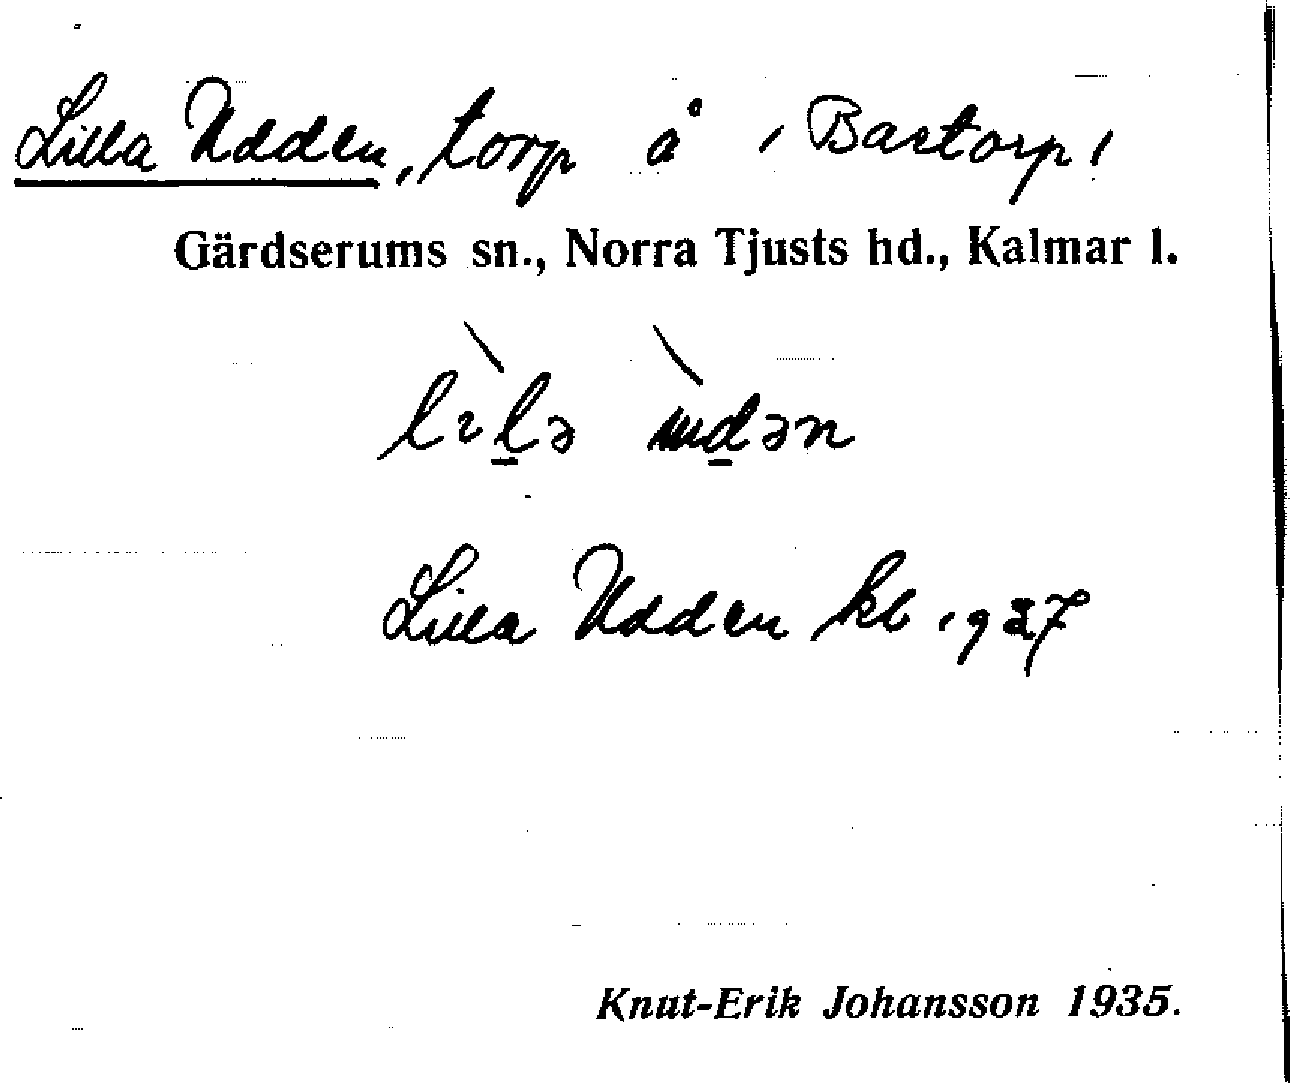 Lilla Udden, torp å / Bastorp /
Gärdserums sn., Norra Tjusts hd., Kalmar l.
Lilla Udden kb 1927
Knut-Erik Johansson 1935.